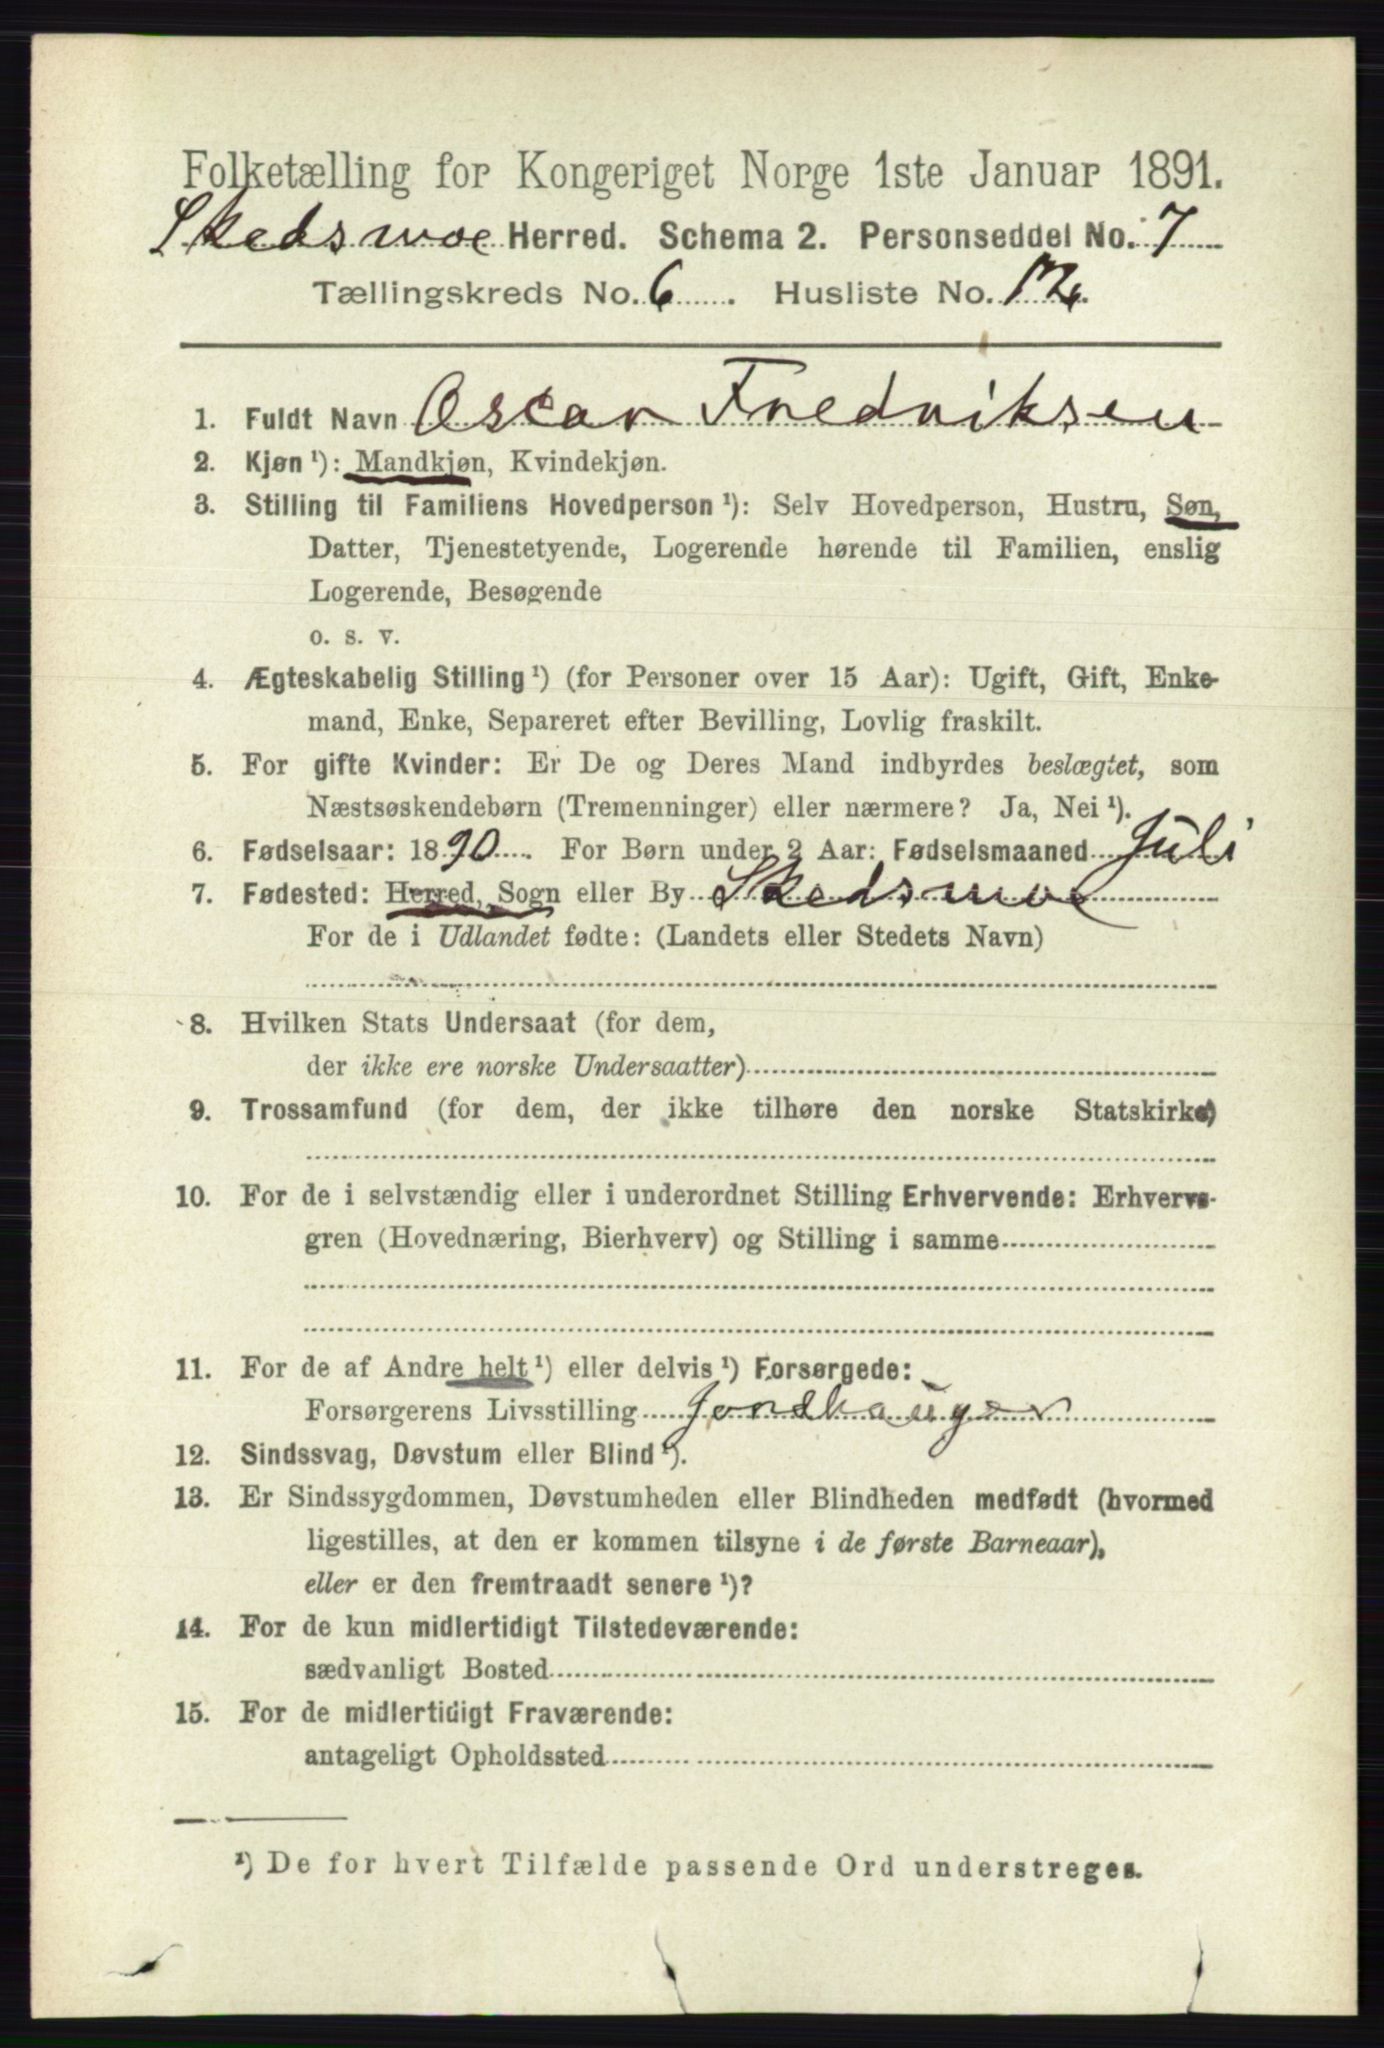 Folketælling for Kongeriget Norge 1ste Januar 1891.
Skedsmoe Herred. Schema 2. Personseddel No. 7
Tællingskreds No. 6. Husliste No.
1. Fuldt Navn Oscar Fredriksen
2. Kjøn¹): Mandkjøn, Kvindekjøn.
3. Stilling til Familiens Hovedperson¹): Selv Hovedperson, Hustru, Søn,
Datter, Tjenestetyende, Logerende hørende til Familien, enslig
Logerende, Besøgende
o. s. v.
4. Ægteskabelig Stilling¹) (for Personer over 15 Aar): Ugift, Gift, Enke-
mand, Enke, Separeret efter Bevilling, Lovlig fraskilt.
5. For gifte Kvinder: Er De og Deres Mand indbyrdes beslægtet, som
Næstsøskendebørn (Tremenninger) eller nærmere? Ja, Nei¹).
6. Fødselsaar: 1890. For Børn under 2 Aar: Fødselsmaaned Juli
7. Fødested: Herred, Sogn eller By Skedsmoe
For de i Udlandet fødte: (Landets eller Stedets Navn)
8. Hvilken Stats Undersaat (for dem,
der ikke ere norske Undersaatter)
9. Trossamfund (for dem, der ikke tilhøre den norske Statskirke)
10. For de i selvstændig eller i underordnet Stilling Erhvervende: Erhvervs-
gren (Hovednæring, Bierhverv) og Stilling i samme
11. For de af Andre helt¹) eller delvis¹) Forsørgede:
Forsørgerens Livsstilling
12. Sindssvag, Døvstum eller Blind¹).
13. Er Sindssygdommen, Døvstumheden eller Blindheden medfødt (hvormed
ligestilles, at den er kommen tilsyne i de første Barneaar),
eller er den fremtraadt senere¹)?
14. For de kun midlertidigt Tilstedeværende:
sædvanligt Bosted
15. For de midlertidigt Fraværende:
antageligt Opholdssted
¹) De for hvert Tilfælde passende Ord understreges.